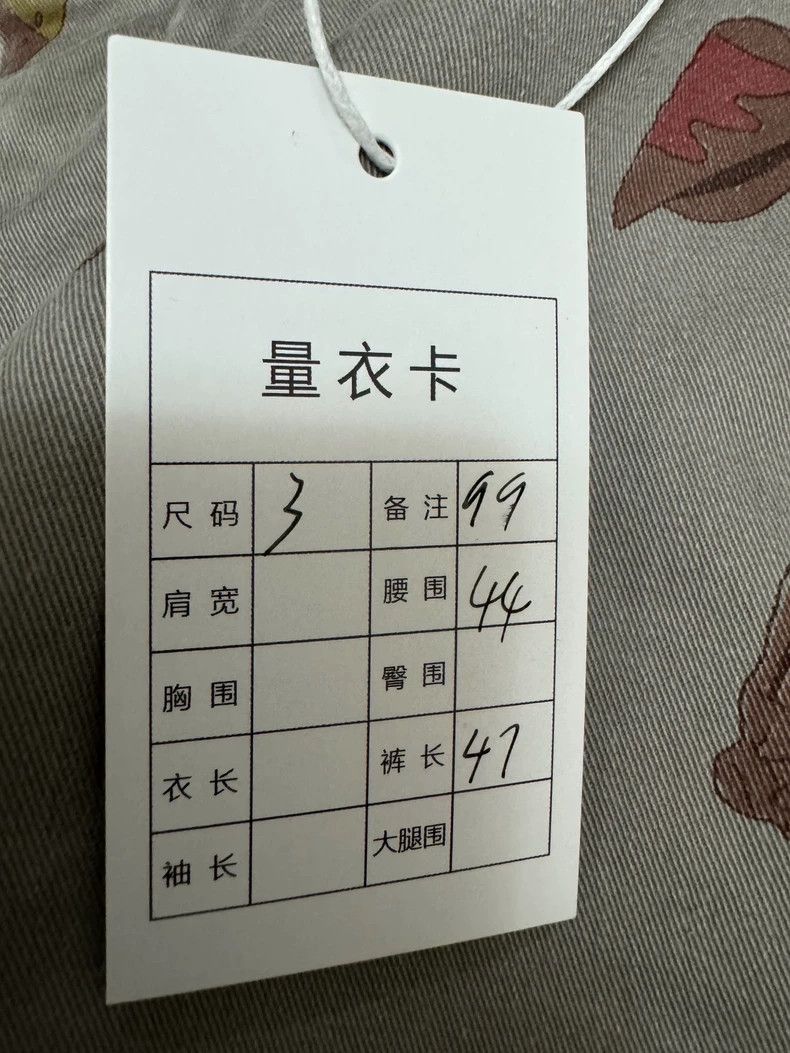 量衣卡
尺码 3 备注 99
肩宽 腰围 44
胸围 臀围
衣长 裤长 47
袖长 大腿围